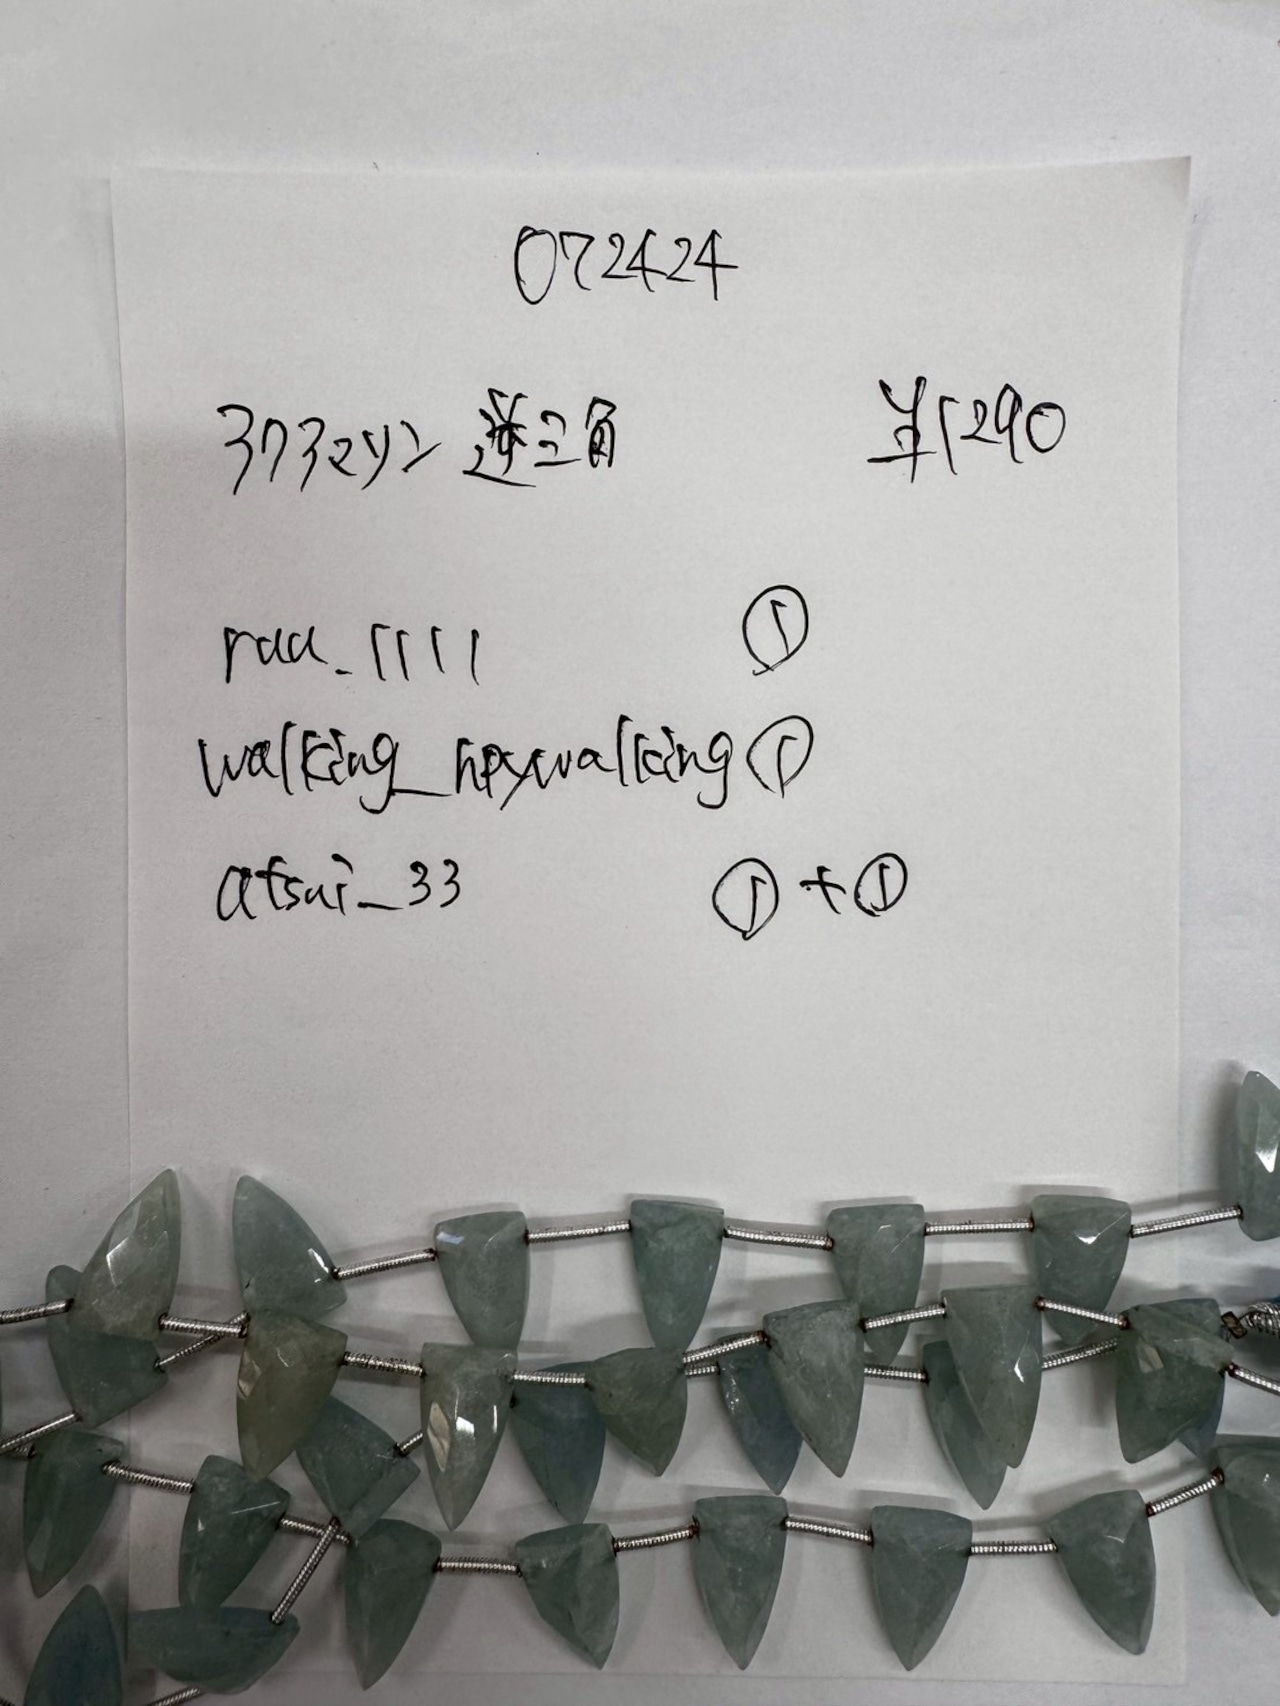 072424
アクアマリン 逆三角 ¥1290
raa_1111 ①
walking_hpywalking ①
atsui_33 ①+①